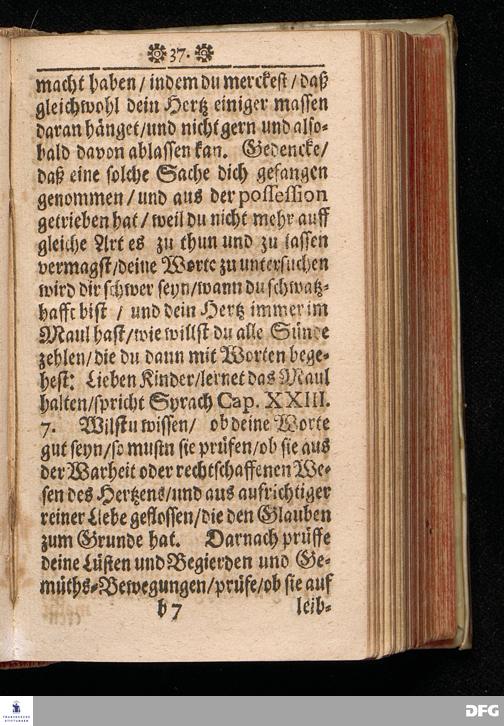 37.
macht haben / indem du merckest / daß
gleichwohl dein Hertz einiger massen
daran hänget/und nicht gern und also-
bald davon ablassen kan. Gedencke/
daß eine solche Sache dich gefangen
genommen / und aus der possession
getrieben hat / weil du nicht mehr auff
gleiche Art es zu thun und zu lassen
vermagst/deine Worte zu untersuchen
wird dir schwer seyn/wann du schwatz-
hafft bist / und dein Hertz immer im
Maul hast/wie willst du alle Sünde
zehlen/die du dann mit Worten bege-
hest: Lieben Kinder/lernet das Maul
halten/spricht Syrach Cap. XXIII.
7. Wilstu wissen/ ob deine Worte
gut seyn/so mustu sie prüfen/ob sie aus
der Warheit oder rechtschaffenen We-
sen des Hertzens/und aus aufrichtiger
reiner Liebe geflossen/die den Glauben
zum Grunde hat. Darnach prüffe
deine Lüsten und Begierden und Ge-
müths-Bewegungen/prüfe/ob sie auf
b 7 leib-
FRANCKESCHE STIFTUNGEN
DFG